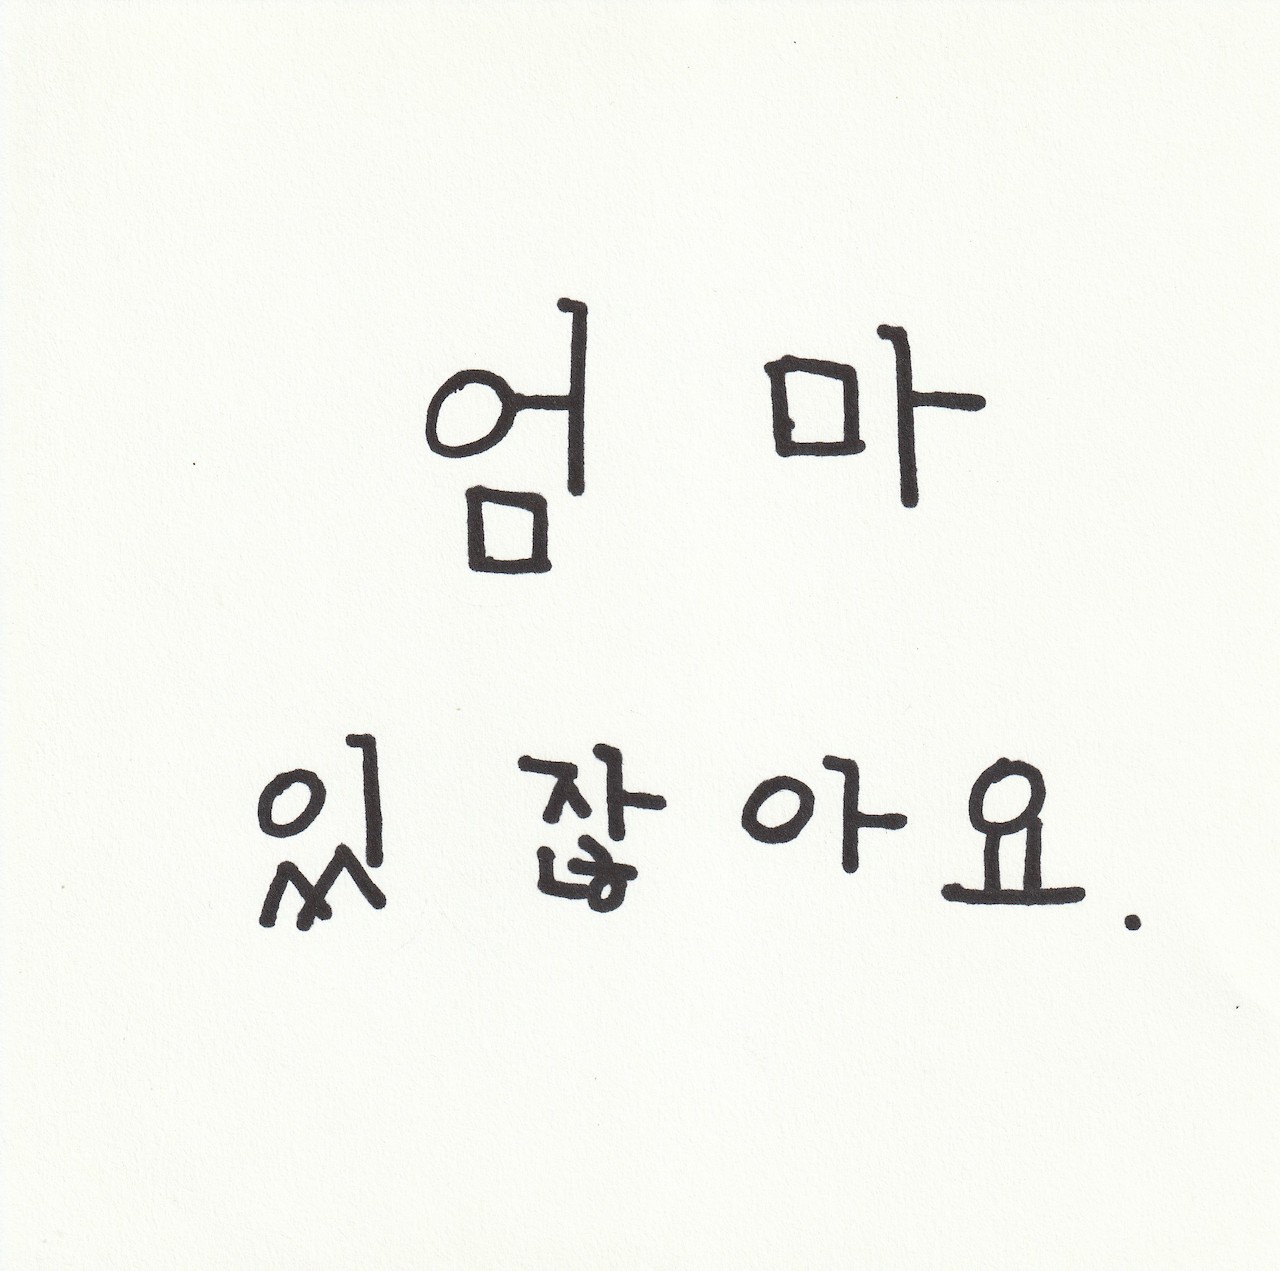 엄마
있잖아요.